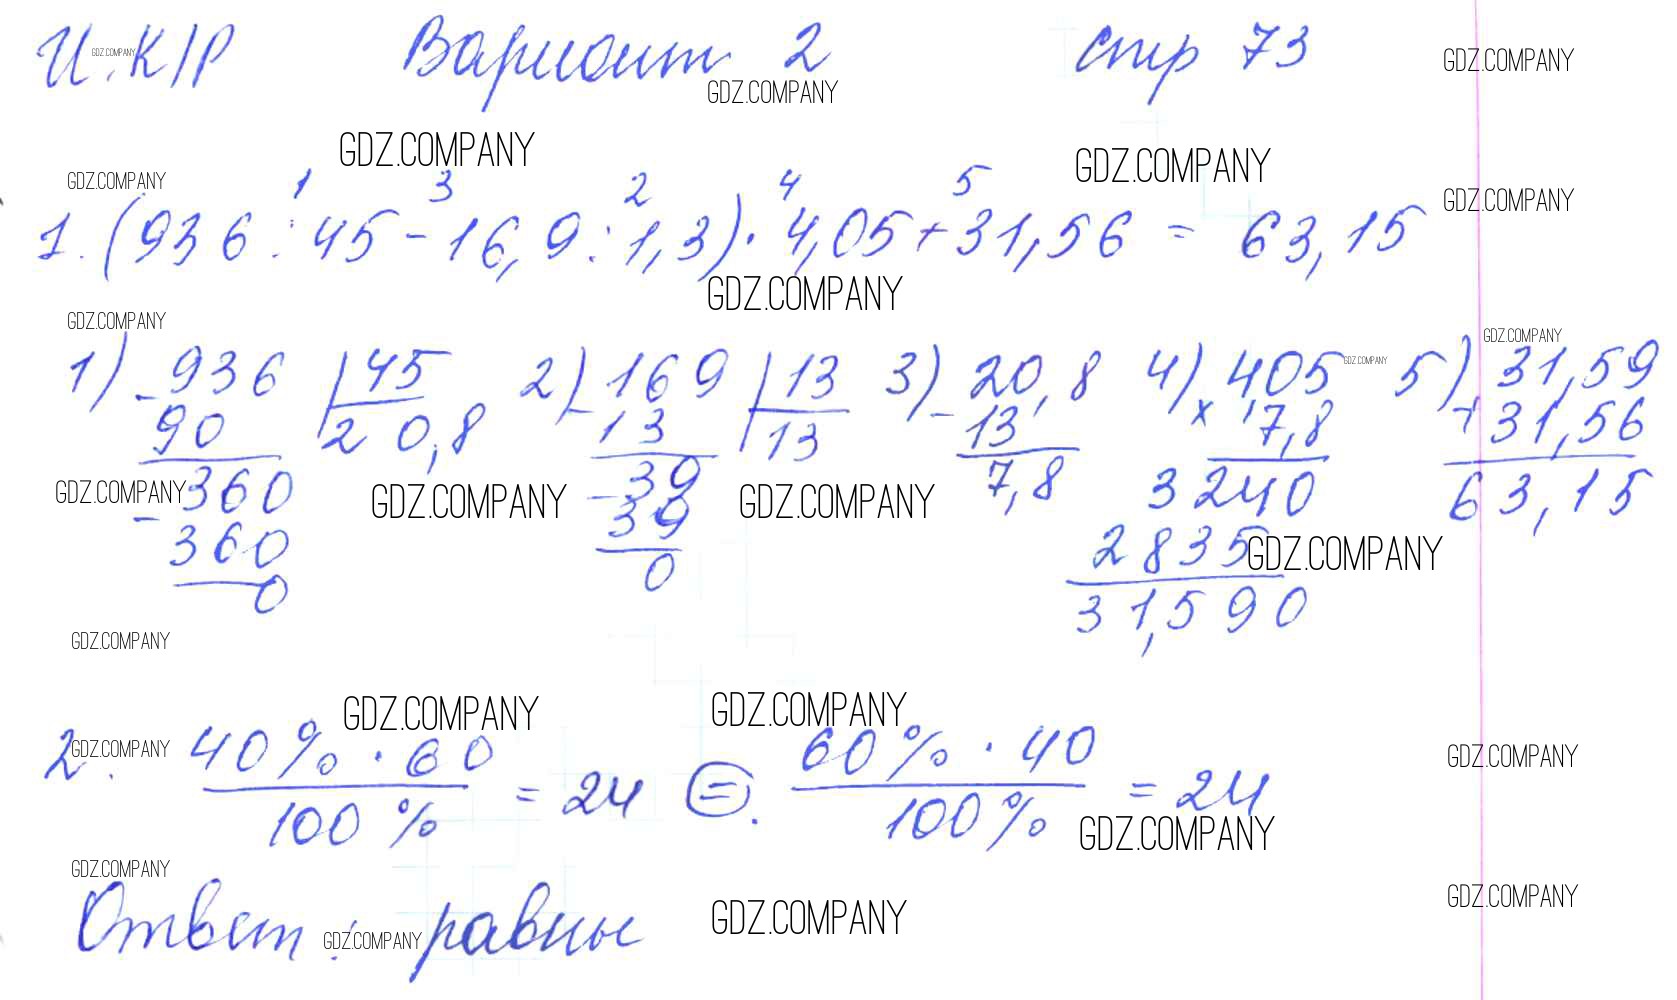 И.К/Р Вариант 2 стр 73
1 3 2 4 5
1. (936 : 45 - 16,9 : 1,3) · 4,05 + 31,56 = 63,15
1) - 936 | 45 2) - 169 | 13 3) - 20,8 4) x 4,05 5) + 31,59
90 | 20,8 13 | 13 13 7,8 31,56
- 360 - 39 7,8 3240 63,15
360 39 2835
0 0 31,590
2. 40% · 60 / 100% = 24 (=). 60% · 40 / 100% = 24
Ответ: равны
GDZ.COMPANY